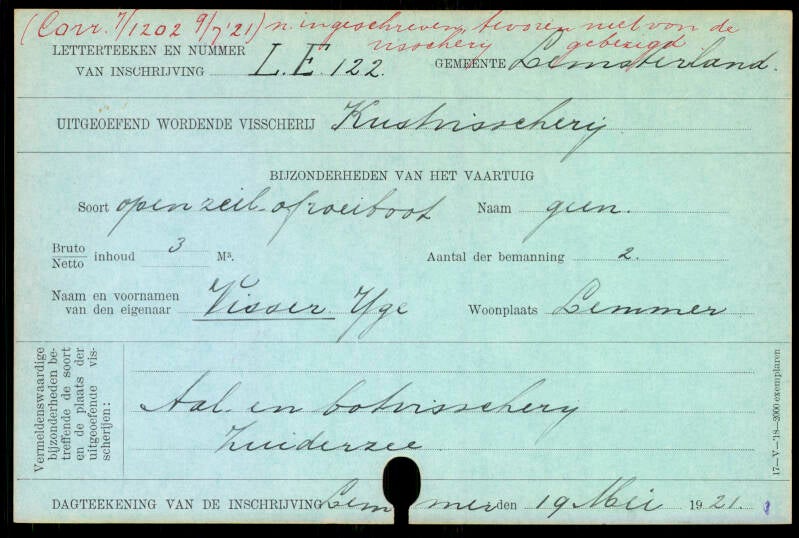 (Corr. 7/1202 9/7 '21) n. ingeschreven, tevoren niet von de
visschery gebezigd
LETTERTEEKEN EN NUMMER
VAN INSCHRIJVING L.E. 122. GEMEENTE Lemsterland.
UITGEOEFEND WORDENDE VISSCHERIJ Kustvisscherij
BIJZONDERHEDEN VAN HET VAARTUIG
Soort open zeil- of roeiboot Naam geen.
Bruto
Netto inhoud 3 M³. Aantal der bemanning 2.
Naam en voornamen
van den eigenaar Visser Yge Woonplaats Lemmer
Vermeldenswaardige
bijzonderheden be-
treffende de soort
en de plaats der
uitgeoefende vis-
scherijen:
Aal- en botvisschery
Zuiderzee
17—V—'18—2000 exemplaren
DAGTEEKENING VAN DE INSCHRIJVING Lemmer den 19 Mei 1921.